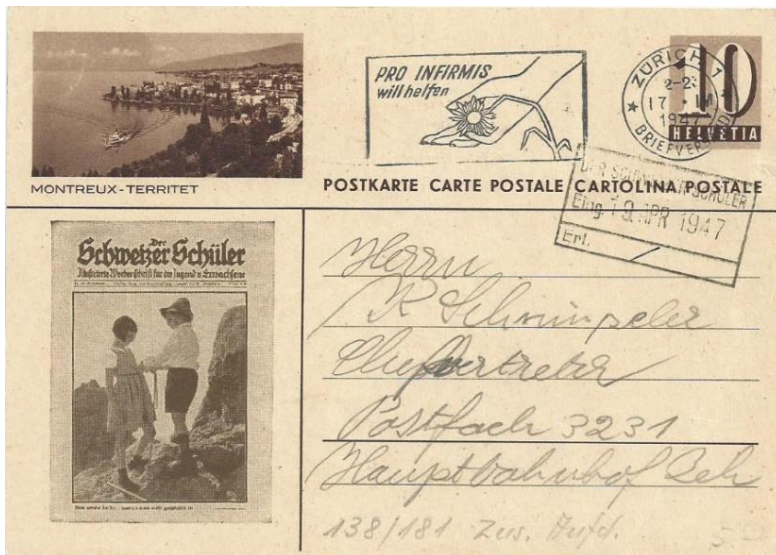 PRO INFIRMIS
will helfen
ZÜRICH 1
17.
1947
BRIEFVERSAND
10
HELVETIA
MONTREUX-TERRITET
POSTKARTE CARTE POSTALE CARTOLINA POSTALE
DER SCHWEIZER SCHÜLER
Eing. 19. APR 1947
Erl.
Der
Schweizer Schüler
Illustrierte Wochenschrift für die Jugend u. Erwachsene
Herrn
R Schnimpeler
Chefvertreter
Postfach 3231
Hauptbahnhof Zch
138/181 Zus.